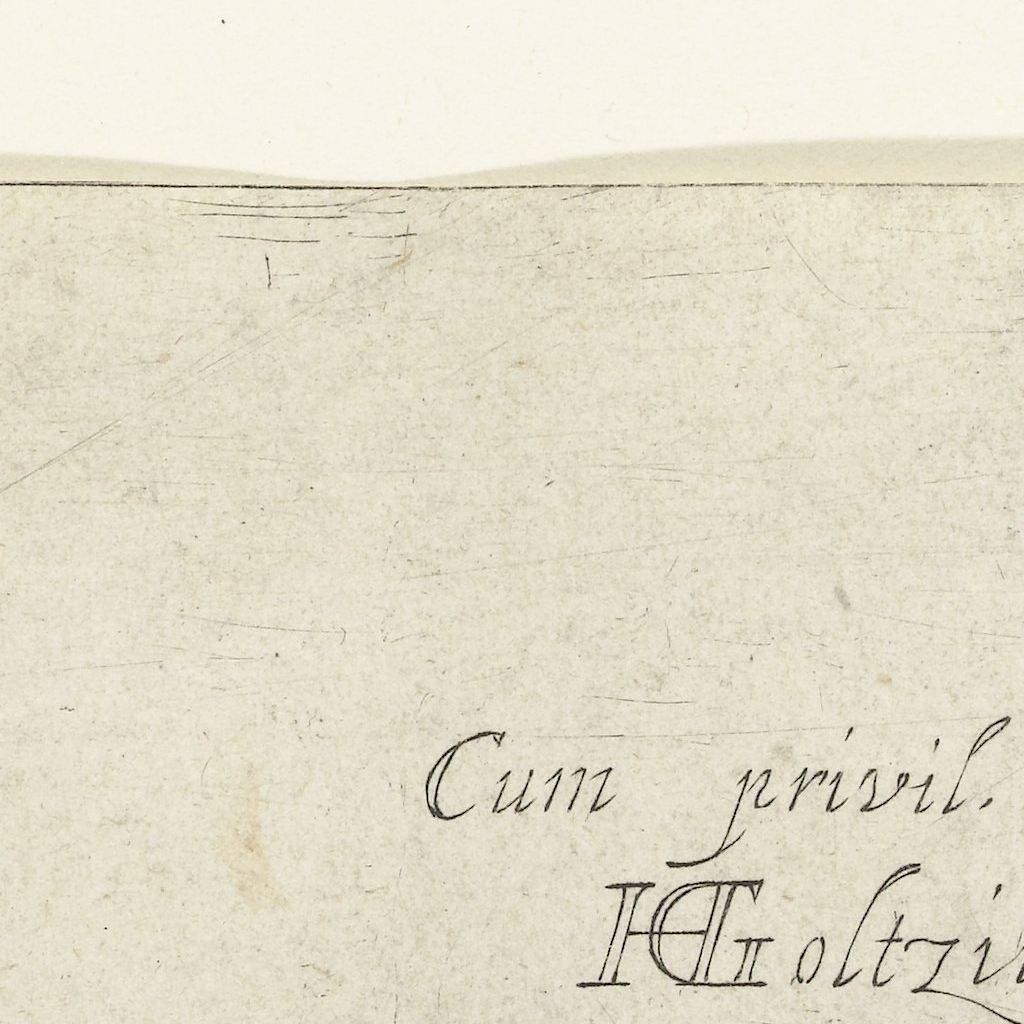 Cum privil.
HGoltzi